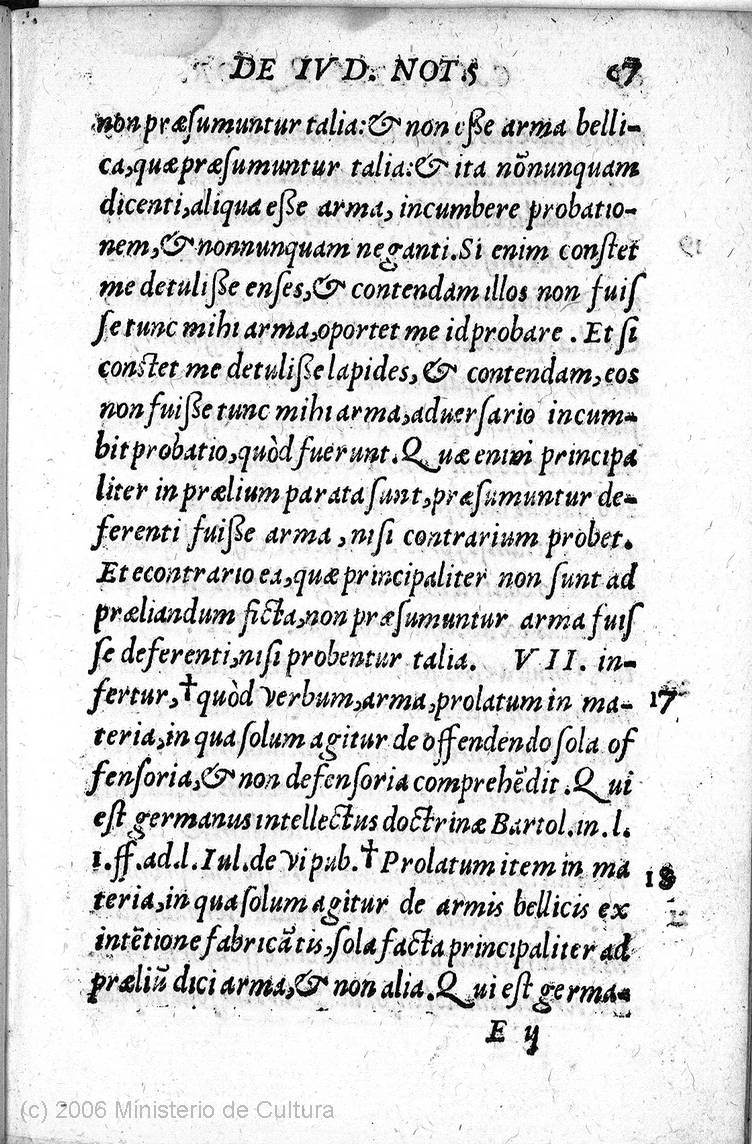 DE IVD. NOT. 67
non præsumuntur talia:& non eße arma belli-
ca,quæ præsumuntur talia:& ita nõnunquam
dicenti,aliqua eße arma, incumbere probatio-
nem,& nonnunquam neganti.Si enim constet
me detulisse enses,& contendam illos non fuis
se tunc mihi arma,oportet me id probare . Et si
constet me detuliße lapides, & contendam,eos
non fuiße tunc mihi arma,aduersario incum-
bit probatio,quòd fuerunt.Quæ enim principa
liter in prælium parata sunt,præsumuntur de-
ferenti fuiße arma ,nisi contrarium probet.
Et econtrario ea,quæ principaliter non sunt ad
præliandum ficta,non præsumuntur arma fuis
se deferenti,nisi probentur talia. VII. in-
fertur,†quòd verbum,arma,prolatum in ma- 17
teria,in qua solum agitur de offendendo sola of
fensoria,& non defensoria comprehẽdit .Qui
est germanus intellectus doctrinæ Bartol.in.l.
1.ff.ad.l.Iul.de vi pub.†Prolatum item in ma 18
teria,in qua solum agitur de armis bellicis ex
intẽtione fabricãtis,sola facta principaliter ad
præliũ dici arma,& non alia.Qui est germa-
E ij
(c) 2006 Ministerio de Cultura